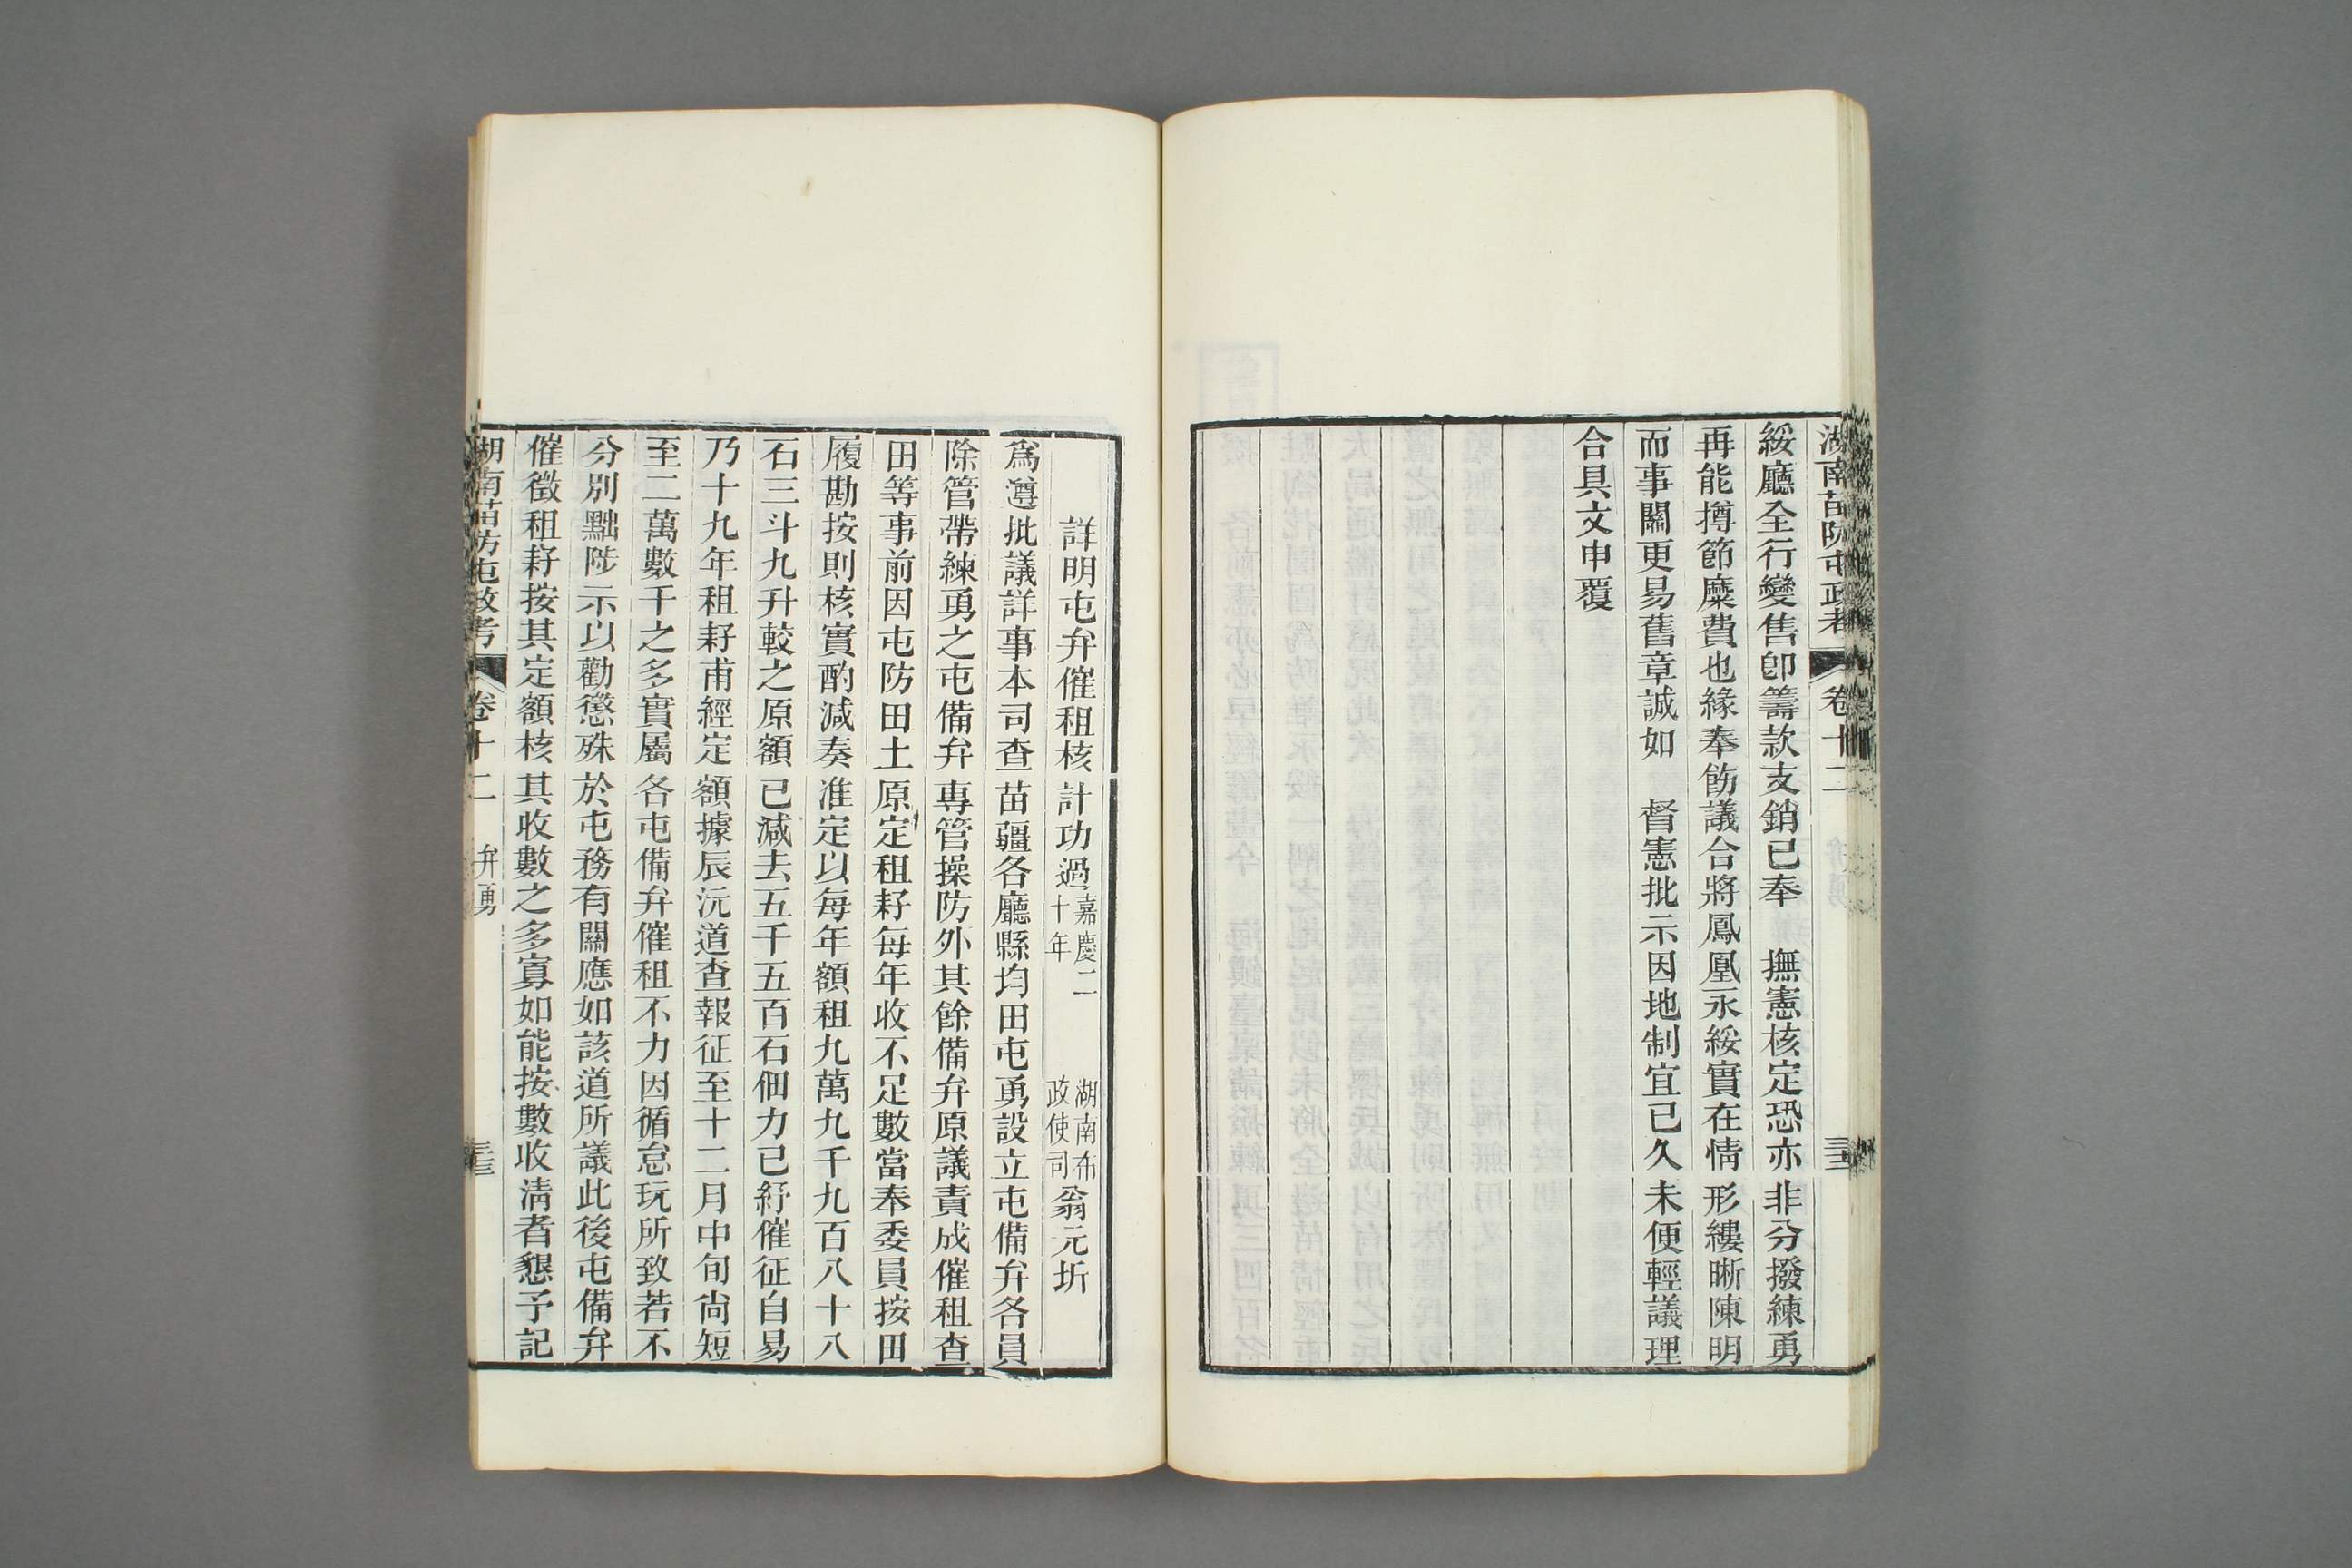 湖南苗防屯政考 卷十二 弁勇 三三
綏廳全行變售卽籌款支銷已奉　撫憲核定恐亦非分撥練勇
再能撙節糜費也緣奉飭議合將鳳凰永綏實在情形縷晰陳明
而事關更易舊章誠如　督憲批示因地制宜已久未便輕議理
合具文申覆
詳明屯弁催租核計功過 嘉慶二十年 湖南布政使司 翁元圻
爲遵批議詳事本司查苗疆各廳縣均田屯勇設立屯備弁各員
除管帶練勇之屯備弁專管操防外其餘備弁原議責成催租查
田等事前因屯防田土原定租籽每年收不足數當奉委員按田
履勘按則核實酌減奏准定以每年額租九萬九千九百八十八
石三斗九升較之原額已減去五千五百石佃力已紓催征自易
乃十九年租籽甫經定額據辰沅道查報征至十二月中旬尚短
至二萬數千之多實屬各屯備弁催租不力因循怠玩所致若不
分別黜陟示以勸懲殊於屯務有關應如該道所議此後屯備弁
催徵租籽按其定額核其收數之多寡如能按數收清者懇予記
湖南苗防屯政考 卷十二 弁勇 三三